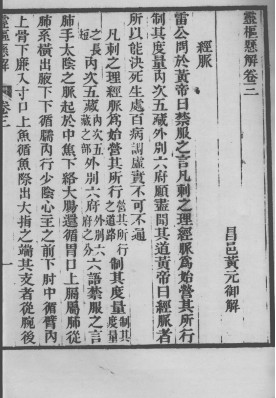 靈樞懸解卷三
昌邑黃元御解
經脈
雷公問於黃帝曰禁服之言凡刺之理經脈為始營其所行
制其度量內次五藏外別六府願盡聞其道黃帝曰經脈者
所以能決死生處百病調虛實不可不通
凡刺之理經脈為始營其所行營其所行之道路制其度量制其度量
之長短內次五藏內次五藏之部外別六府外別六府之分六語禁服之言
肺手太陰之脈起於中焦下絡大腸還循胃口上膈屬肺從
肺系橫出腋下下循臑內行少陰心主之前下肘中循臂內
上骨下廉入寸口上魚循魚際出大指之端其支者從腕後
靈樞懸解 卷三 一